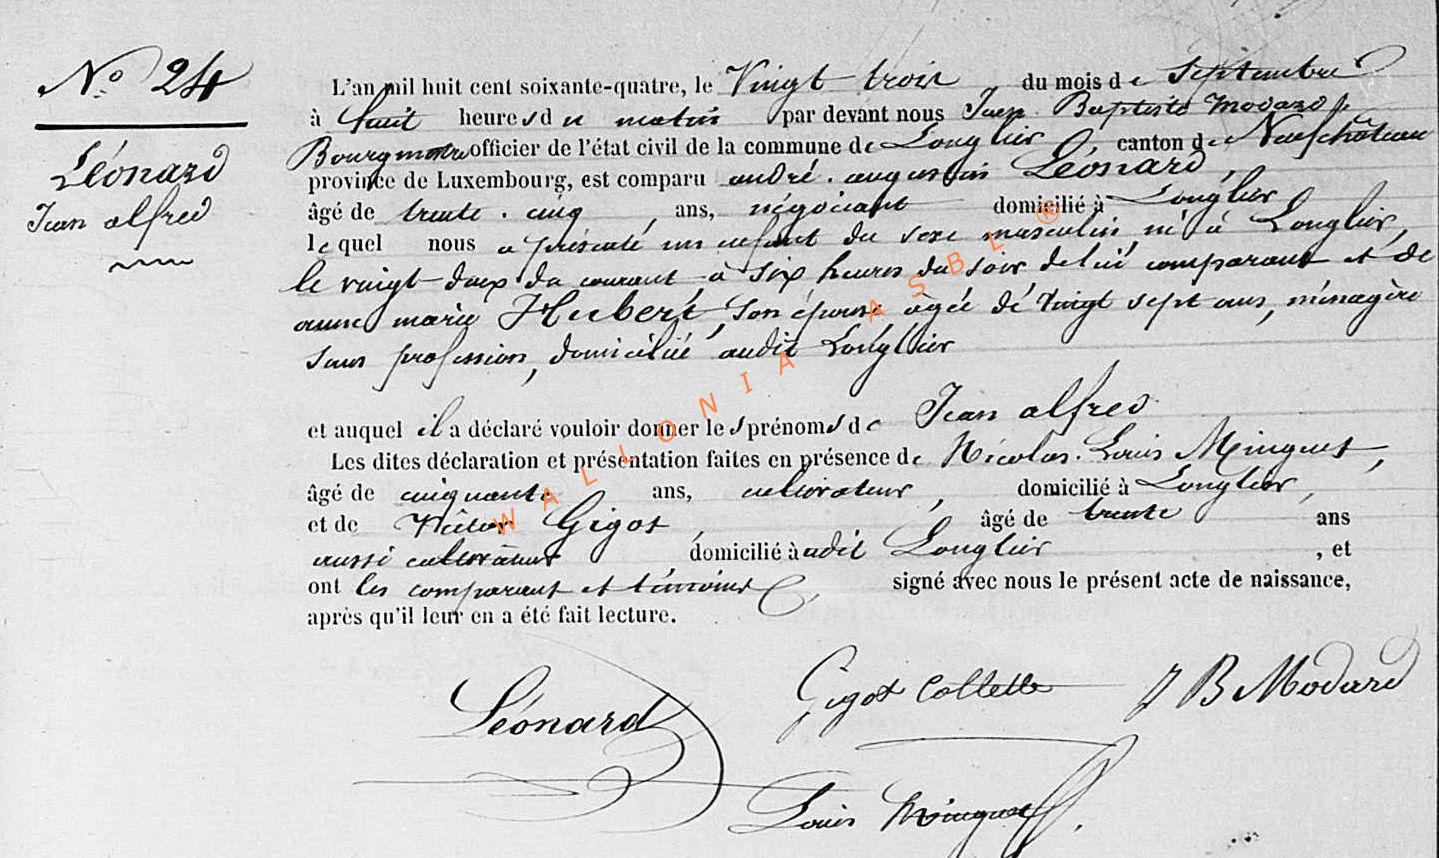 N° 24
Léonard
Jean alfred
L'an mil huit cent soixante-quatre, le Vingt trois du mois de Septembre
à huit heures du matin par devant nous Jean Baptiste Modard
Bourgmestre officier de l'état civil de la commune de Longlier, canton de Neufchâteau
province de Luxembourg, est comparu andré augustin Léonard,
âgé de trente cinq, ans, négociant domicilié à Longlier
lequel nous a présenté un enfant du sexe masculin, né à Longlier,
le vingt-deux du courant à six heures du soir de lui comparant et de
anne marie Hubert, son épouse, agée de vingt sept ans, ménagère
sans profession, domiciliée audit Longlier
et auquel il a déclaré vouloir donner les prénoms de Jean alfred
Les dites déclaration et présentation faites en présence de Nicolas Louis Minguet,
âgé de cinquante ans, cultivateur, domicilié à Longlier,
et de Victor Gigot âgé de trente ans
aussi cultivateur domicilié audit Longlier, et
ont les comparant et témoins signé avec nous le présent acte de naissance,
après qu'il leur en a été fait lecture.
Léonard
Gigot Collette
J B Modard
Louis Minguet
WALLONIA ASBL ®